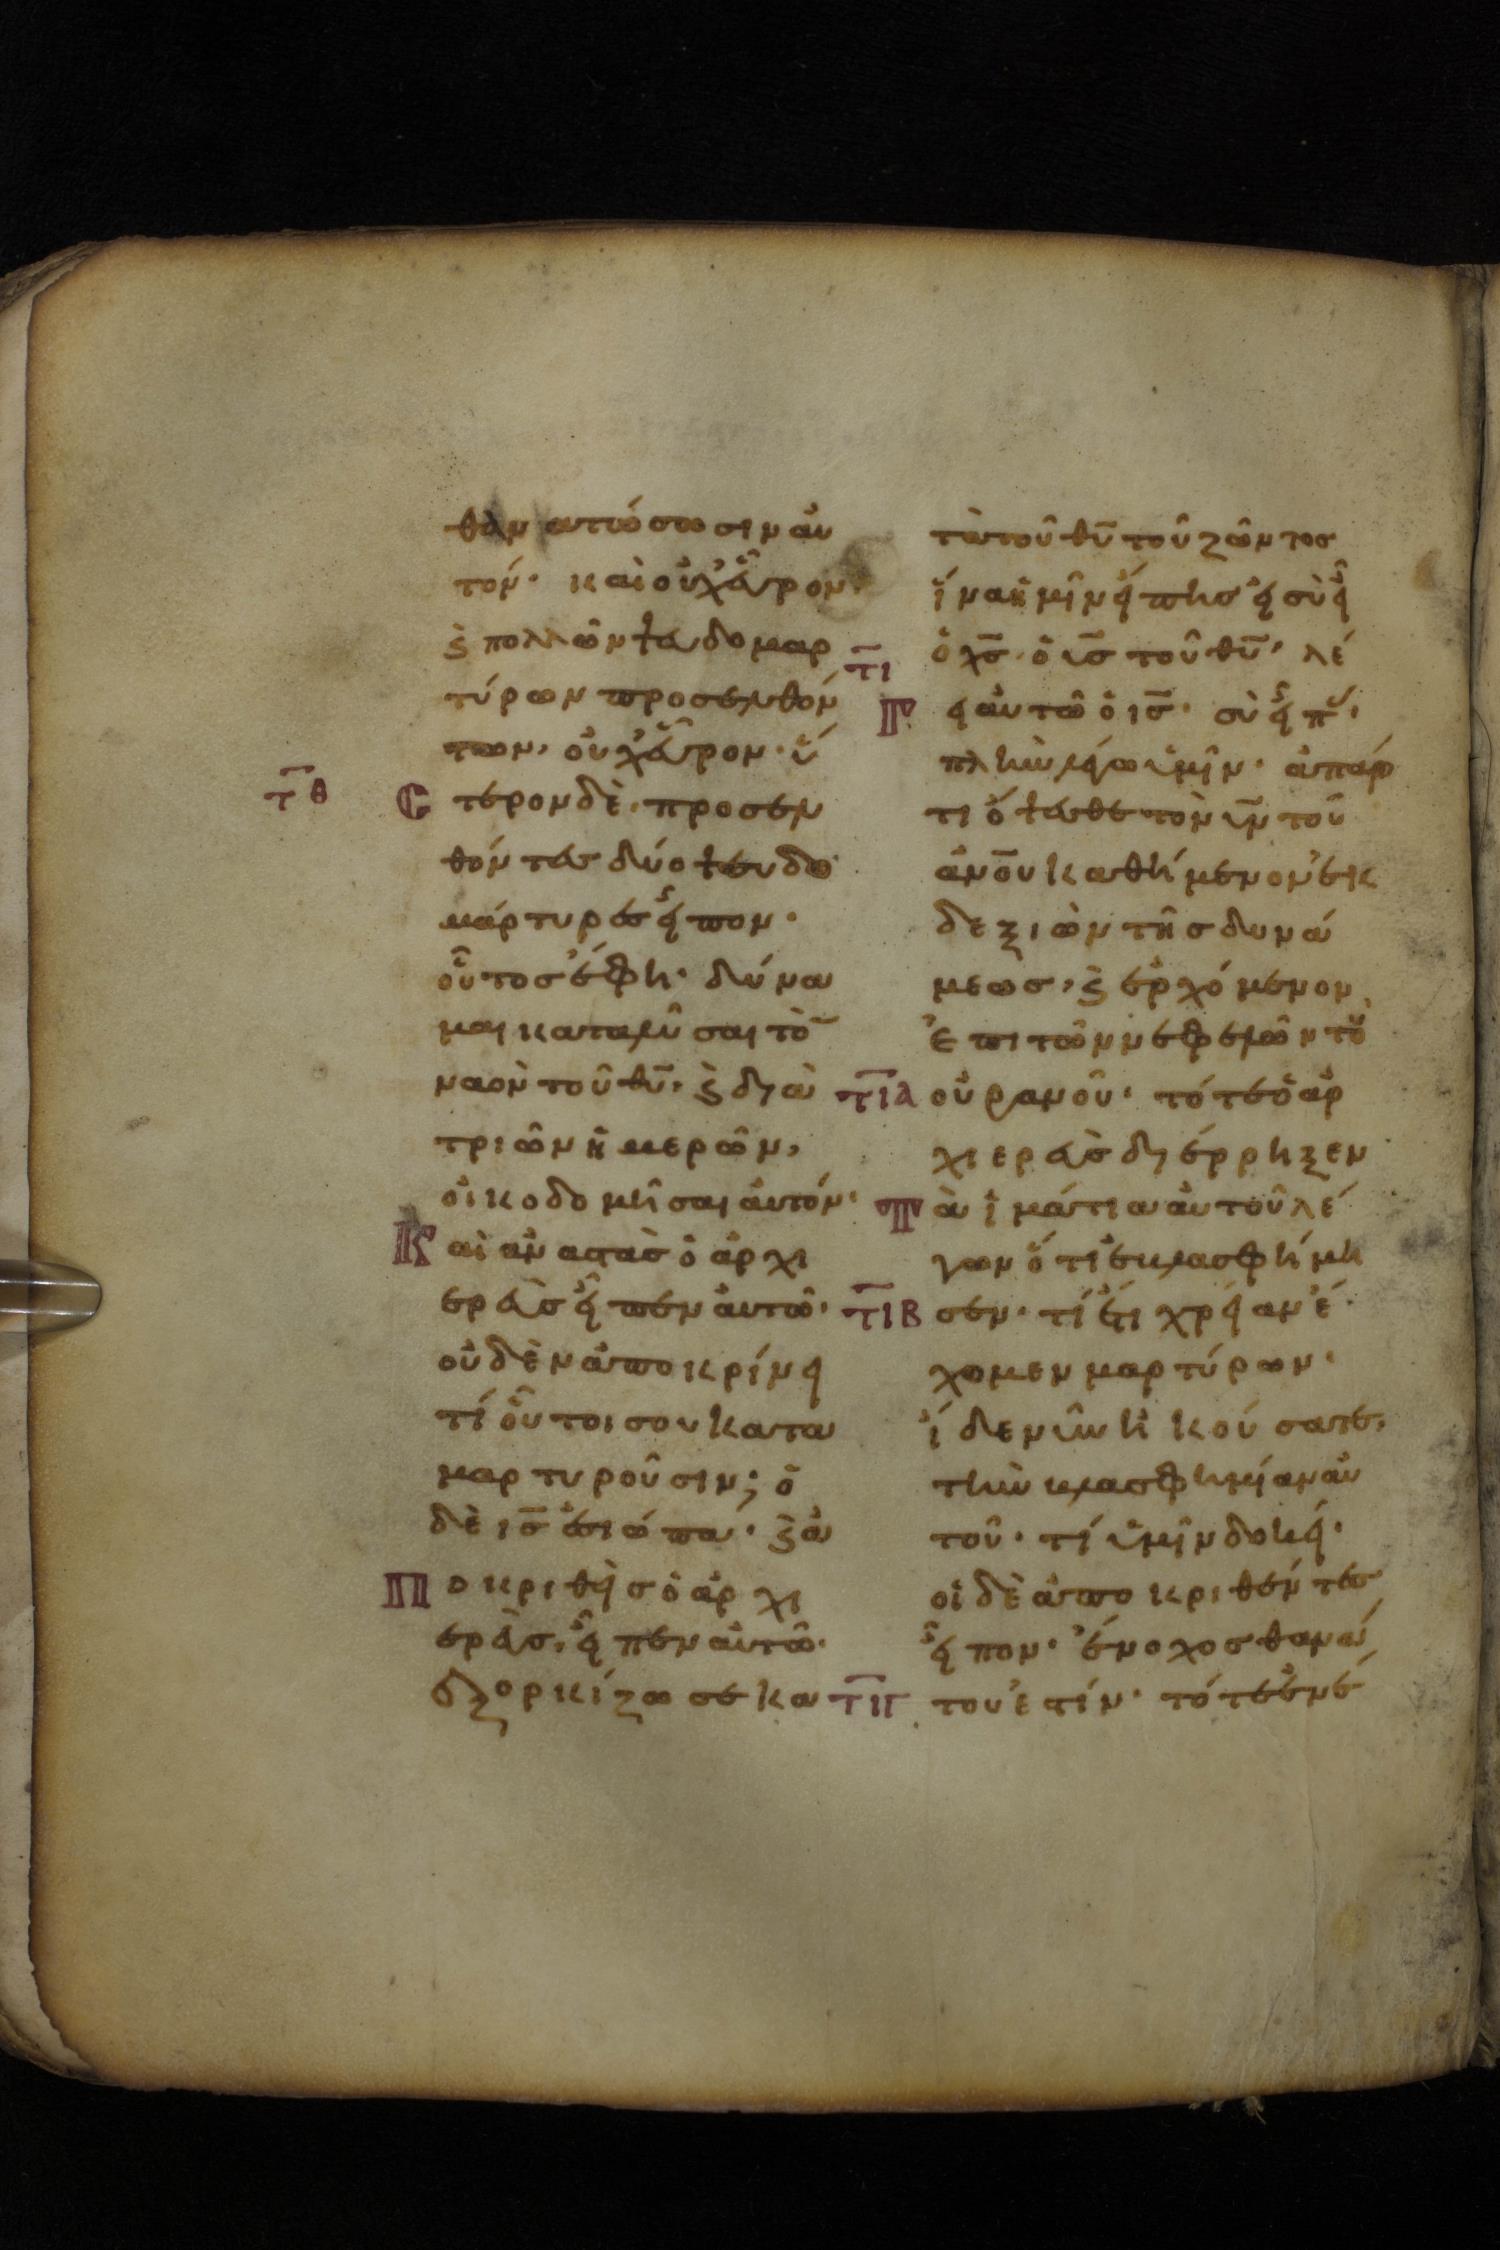 θανατώσωσιν αὐ
τόν· καὶ οὐχ εὗρον·
ϗ πολλῶν ψευδομαρ
τύρων προσελθόν
των, οὐχ εὗρον· ὕ
τθ
Ϲτερον δὲ· προσελ
θόντες δύο ψευδο
μάρτυρες εἶπον·
οὗτος ἔφη· δύνα
μαι καταλῦσαι τὸ
ναὸν τοῦ θυ̅, ϗ διὰ
τριῶν ἡμερῶν,
οἰκοδομῆσαι αὐτόν·
Καὶ ἀναστὰς ὁ ἀρχι
ερεὺς εἶπεν αὐτῶ·
οὐδὲν ἀποκρίνει
τί οὗτοι σου κατα
μαρτυροῦσιν; ὁ
δὲ ις̅ ἐσιώπα· ϗ ἀ
Ποκριθεὶς ὁ ἀρχι
ερεὺς, εἶπεν αὐτῶ·
ἐξορκίζω σε κα
τὰ τοῦ θυ̅ τοῦ ζῶντος
ἵνα ἡμῖν εἴπης εἰ σὺ εἶ
ὁ χς̅, ὁ υς̅ τοῦ θυ̅, λέ
τι
Γει αὐτῶ ὁ ις̅· σὺ εἶπ·
πλὴν λέγω ὑμῖν· ἀπάρ
τι ὄψεσθε τὸν υν̅ τοῦ
ἀνο̅υ καθήμενον ἐκ
δεξιῶν τῆς δυνά
μεως, ϗ ἐρχόμενον
ἐπι τῶν νεφελῶν τοῦ
τια
οὐρανοῦ· τότε ὁ ἀρ
χιερεὺς διέρρηξεν
Τὰ ἱμάτια αὐτοῦ λέ
γων ὅτι ἐβλασφήμη
τιβ
σεν· τί ἔτι χρείαν ἔ
χομεν μαρτύρων·
ἴδε νῦν ἠκούσατε,
τὴν βλασφημίαν αὐ
τοῦ· τί ὑμῖν δοκεῖ·
οἱ δὲ ἀποκριθέντες
εἶπον· ἔνοχος θανά
τιγ
του ἐστίν· τότε ἐνέ